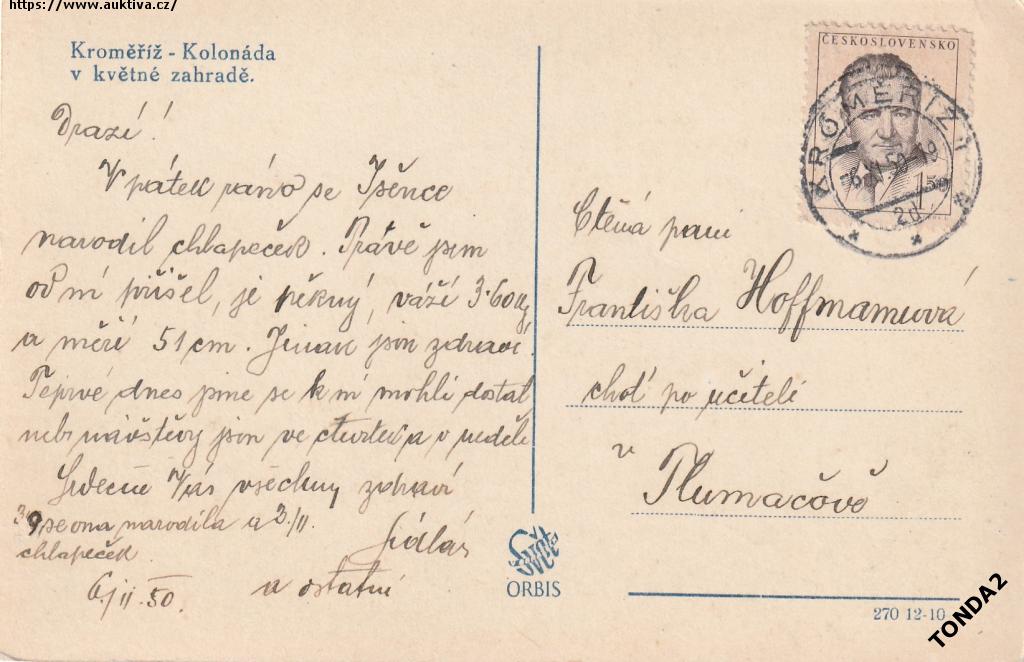 https://www.auktiva.cz/
Kroměříž - Kolonáda
v květné zahradě.
Drazí!
V pátek ráno se
narodil chlapeček. Právě jsem
od ní přišel, je pěkný, váží 3·60 kg
a měří 51 cm. Jinak jsou zdraví.
Teprve dnes jsme se k ní mohli dostat
neb návštěvy jsou ve čtvrtek a v neděli
Srdečně Vás všechny zdraví
se ona narodila a 3./II.
chlapeček
a ostatní
6./II. 50.
ČESKOSLOVENSKO
KROMĚŘÍŽ 1
1,50
Ctěná paní
Františka Hoffmannová
choť po učiteli
v
Tlumačově
Svět
ORBIS
270 12-10
TONDA2